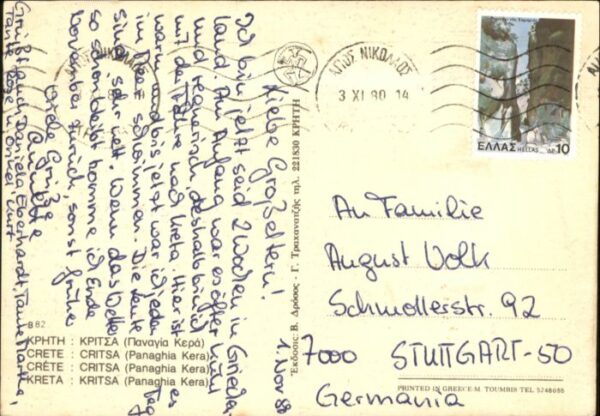 1. Nov 80
Liebe Großeltern!
Ich bin jetzt seid 2 Wochen in Griechen
land. Am Anfang war es öfter kühl
und regnerisch, deshalb bin ich
mit der Fähre nach Kreta. Hier ist es
warm und bis jetzt war ich jeden Tag
im Meer schwimmen. Die Leute
sind sehr nett. Wenn das Wetter
so schön bleibt komme ich Ende
November zurück, sonst früher
Viele Grüße
Grüßt auch Daniela, Eberhardt, Tante Martha,
Tante Rose u. Onkel Kurt
ΑΓΙΟΣ ΝΙΚΟΛΑΟΣ
3 XI 80 14
ΕΛΛΑΣ HELLAS ΔΡ. 10
An Familie
August Volk
Schmollerstr. 92
7000 STUTTGART-50
Germania
Εκδοσεις Β. Δρόσος - Γ. Τραχανατζής τηλ. 221830 ΚΡΗΤΗ
B 82
ΚΡΗΤΗ : ΚΡΙΤΣΑ (Παναγία Κερά)
CRETE : CRITSA (Panaghia Kera)
CRÈTE : CRITSA (Panaghia Kera)
KRETA : KRITSA (Panaghia Kera)
PRINTED IN GREECE-M. TOUMBIS TEL 5248655